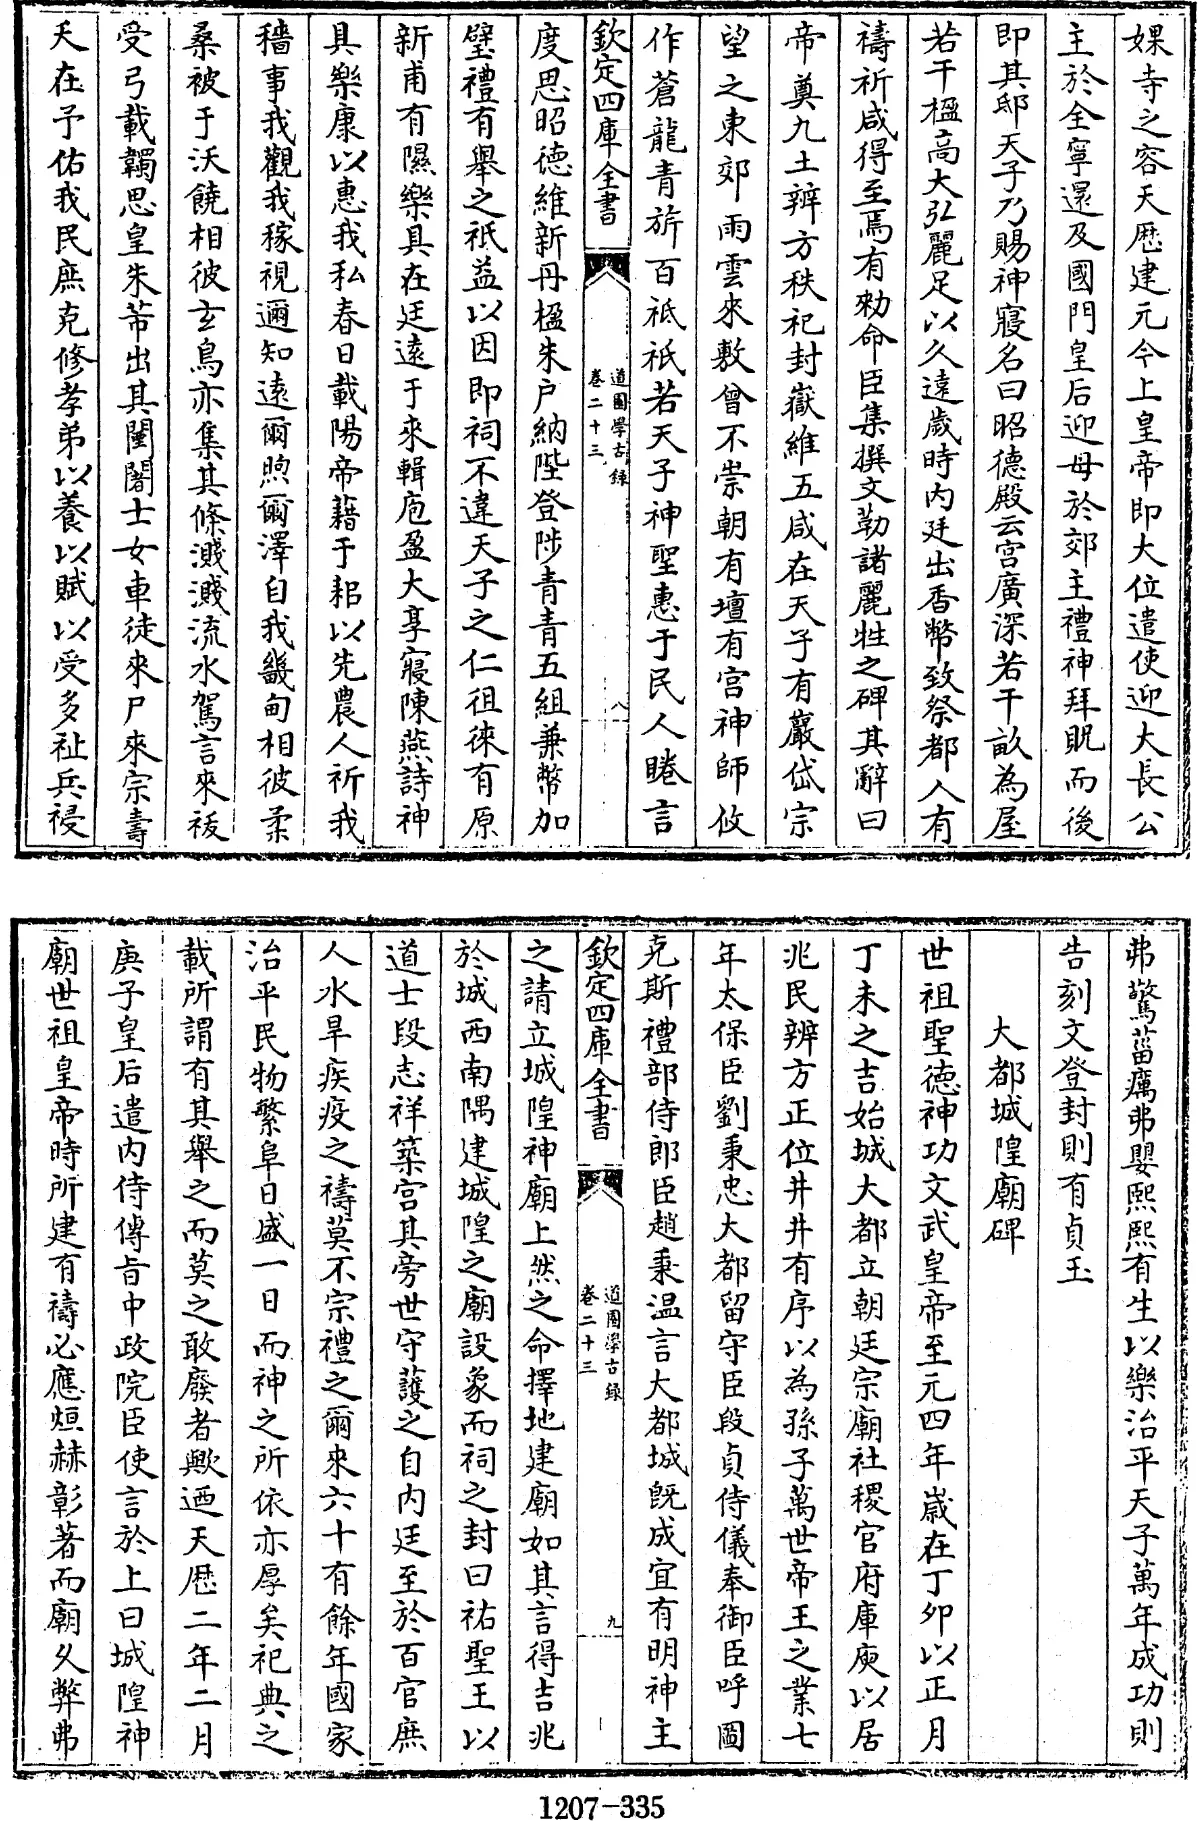 婐寺之容天厯建元今上皇帝即大位遣使迎大長公
主於全寧還及國門皇后迎母於郊主禮神拜貺而後
即其邸天子乃賜神寢名曰昭德殿云宮廣深若干畝為屋
若干楹高大弘麗足以久遠歲時内廷出香幣致祭都人有
禱祈咸得至焉有勅命臣集撰文勒諸麗牲之碑其辭曰
帝奠九土辨方秩祀封嶽維五咸在天子有嚴岱宗
望之東郊雨雲來敷曾不崇朝有壇有宫神師攸
作蒼龍青旂百祗祇若天子神聖惠于民人睠言
欽定四庫全書
道園學古錄
卷二十三
八
度思昭德維新丹楹朱户納陛登陟青青五組兼幣加
璧禮有舉之祇益以因即祠不違天子之仁徂徠有原
新甫有隰樂具在廷遠于來輯庖盈大享寢陳燕詩神
具樂康以惠我私春日載陽帝藉于耜以先農人祈我
穡事我觀我稼視邇知遠爾煦爾澤自我畿甸相彼柔
桑被于沃饒相彼玄鳥亦集其條濺濺流水駕言來祓
受弓載韣思皇朱芾出其闉闍士女車徒來尸來宗壽
夭在予佑我民庶克修孝弟以養以賦以受多祉兵祲
弗驚菑癘弗嬰熙熙有生以樂治平天子萬年成功則
告刻文登封則有貞玉
大都城隍廟碑
世祖聖德神功文武皇帝至元四年嵗在丁夘以正月
丁未之吉始城大都立朝廷宗廟社稷官府庫庾以居
兆民辨方正位井井有序以為孫子萬世帝王之業七
年太保臣劉秉忠大都留守臣段貞侍儀奉御臣呼圖
克斯禮部侍郎臣趙秉温言大都城既成宜有明神主
欽定四庫全書
道園學古錄
卷二十三
九
之請立城隍神廟上然之命擇地建廟如其言得吉兆
於城西南隅建城隍之廟設象而祠之封曰祐聖王以
道士段志祥築宫其旁世守護之自内廷至於百官庶
人水旱疾疫之禱莫不宗禮之爾來六十有餘年國家
治平民物繁阜日盛一日而神之所依亦厚矣祀典之
載所謂有其舉之而莫之敢廢者歟迺天厯二年二月
庚子皇后遣内侍傳旨中政院臣使言於上曰城隍神
廟世祖皇帝時所建有禱必應烜赫彰著而廟久弊弗
1207-335